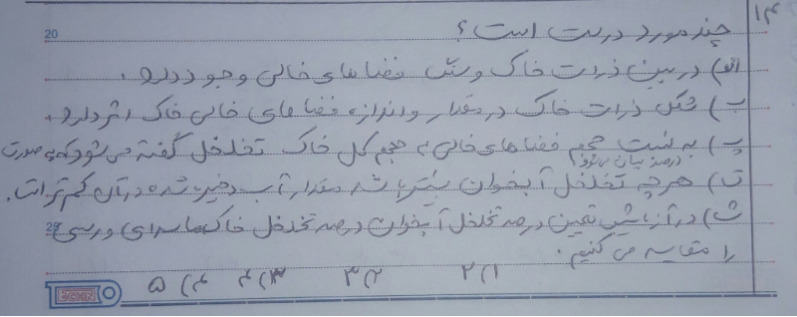 ۱۴) چند مورد درست است؟
20
الف) در بین ذرات خاک و شن فضاهای خالی وجود دارد.
ب) شکل ذرات خاک در مقدار و اندازه فضاهای خالی خاک اثر دارد.
پ) به نسبت حجم فضاهای خالی به حجم کل خاک تخلخل گفته می شود که به صورت
درصد بیان میشود
ت) هرچه تخلخل آبخوان بیشتر باشد مقدار آب ذخیره شده در آن کم تر است.
ث) در آزمایش تعیین درصد تخلخل آبخوان درصد تخلخل خاک ها رسی
25
را مقایسه می کنیم.
۱) ۲ ۲) ۳ ۳) ۴ ۴) ۵